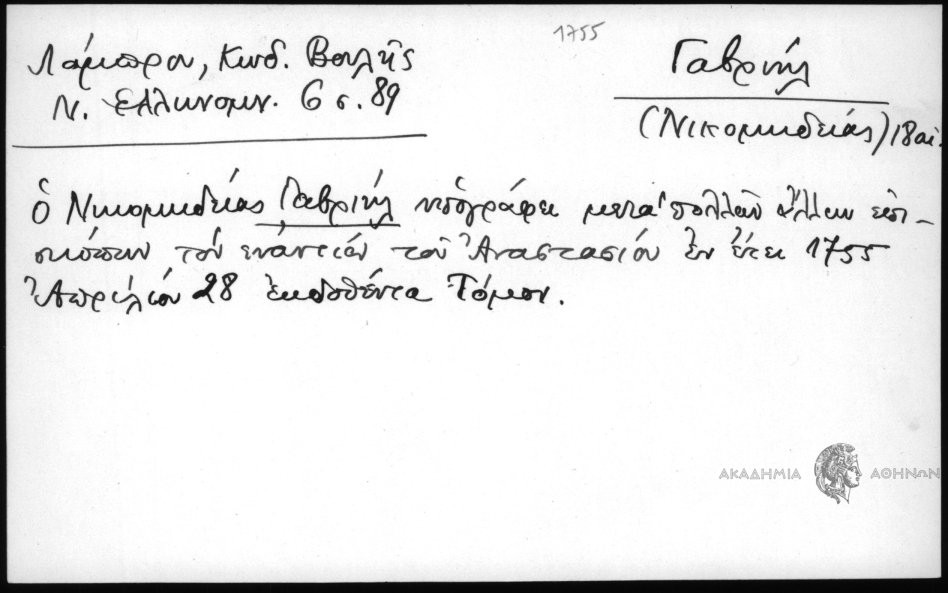 1755
Λάμπρου, Κωδ. Βουλῆς
Ν. Ἑλληνομν. 6 σ. 89
Γαβριήλ
(Νικομηδείας) 18 αἰ.
Ὁ Νικομηδείας Γαβριήλ ὑπογράφει μετὰ πολλῶν ἄλλων ἐπι-
σκόπων τὸν ἐναντίον τοῦ Ἀναστασίου ἐν ἔτει 1755
Ἀπριλίου 28 ἐκδοθέντα Τόμον.
ΑΚΑΔΗΜΙΑ ΑΘΗΝΩΝ